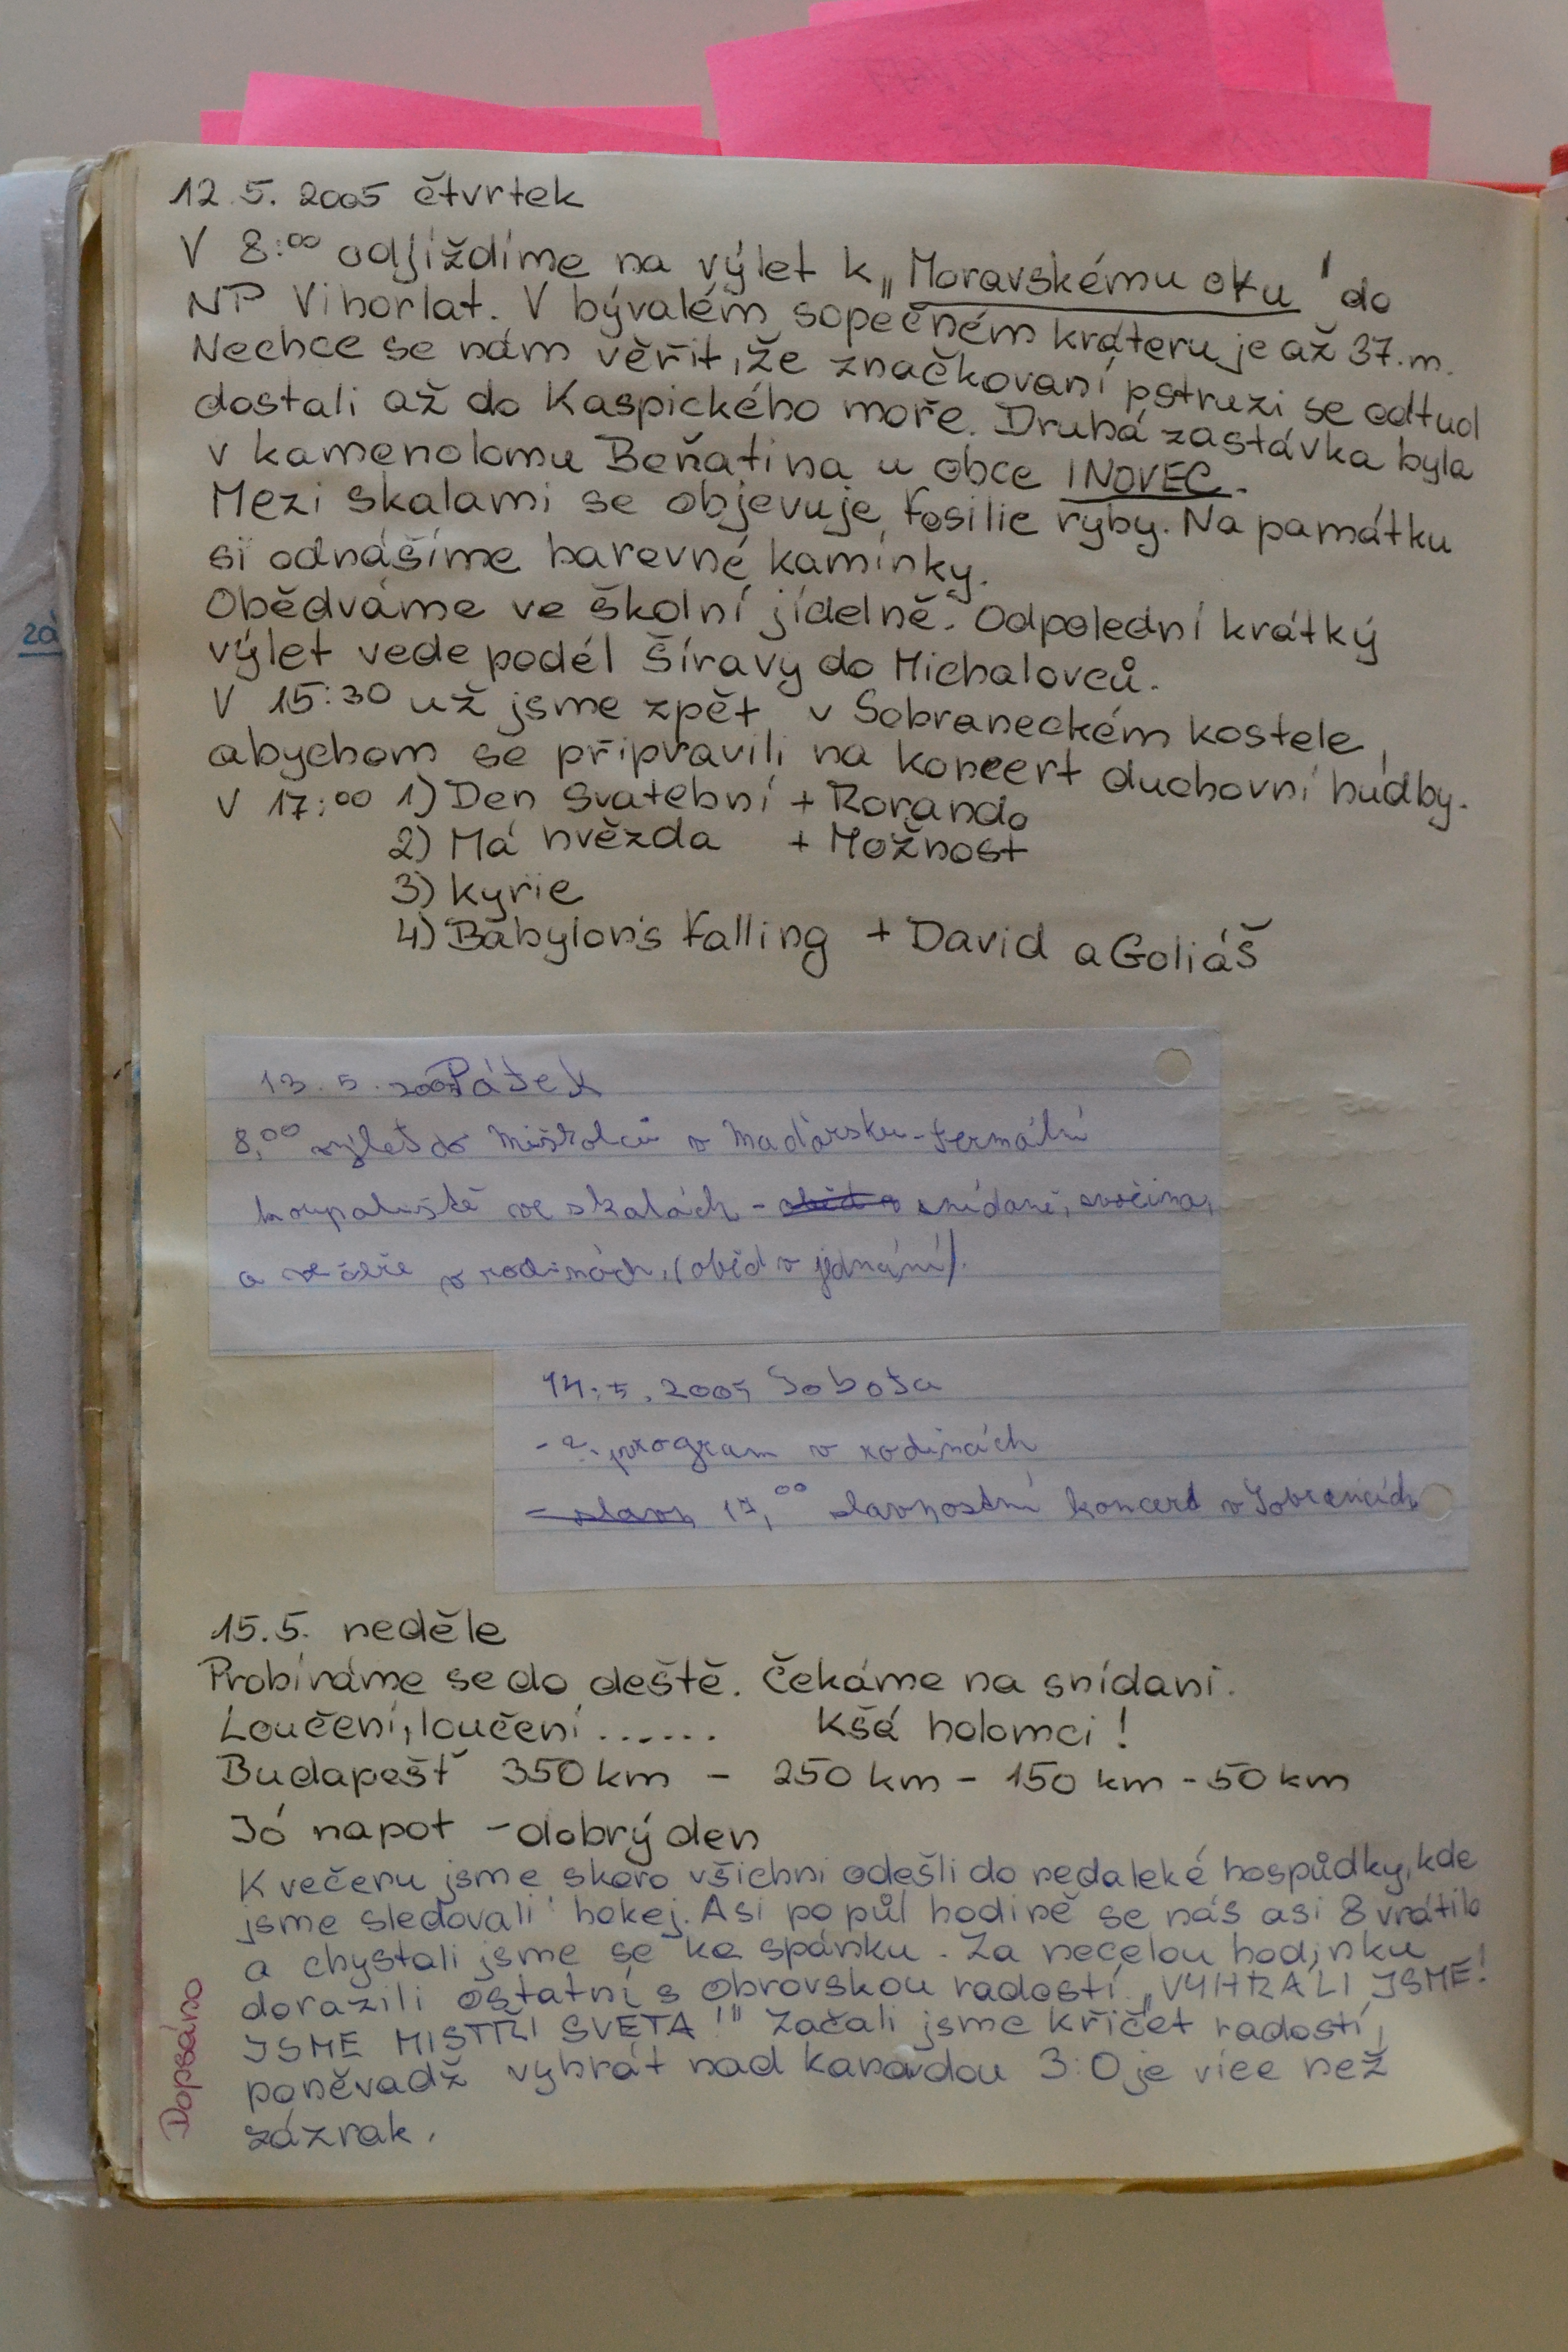 12.5. 2005 čtvrtek
V 8:00 odjíždíme na výlet k „Moravskému oku" do
NP Vihorlat. V bývalém sopečném kráteru je až 37.m.
Nechce se nám věřit, že značkovaní pstruzi se odtud
dostali až do Kaspického moře. Druhá zastávka byla
v kamenolomu Beňatina u obce INOVEC.
Mezi skalami se objevuje fosilie ryby. Na památku
si odnášíme barevné kamínky.
Obědváme ve školní jídelně. Odpolední krátký
výlet vede podél Šíravy do Michalovců.
V 15:30 už jsme zpět v Sobraneckém kostele,
abychom se připravili na koncert duchovní hudby.
V 17:00 1) Den svatební + Rorando
2) Má hvězda + Možnost
3) Kyrie
4) Babylon's Falling + David a Goliáš
13.5.2005 Pátek
8,00 výlet do Miškolců v Maďarsku - termální
koupaliště ve skalách - snídaně, svačina,
a večeře v rodinách, (oběd v jednání).
14.5.2005 Sobota
-?. program v rodinách
- slavn 17,00 slavnostní koncert v Sobrancích
15.5. neděle
Probíráme se do deště. Čekáme na snídani.
Loučení, loučení...... Kšá holomci!
Budapešť 350 km - 250 km - 150 km - 50 km
Jó napot - dobrý den
K večeru jsme skoro všichni odešli do nedaleké hospůdky, kde
jsme sledovali hokej. Asi po půl hodině se nás asi 8 vrátilo
a chystali jsme se ke spánku. Za necelou hodinku
dorazili ostatní s obrovskou radostí „VYHRÁLI JSME!
JSME MISTŘI SVĚTA!" Začali jsme křičet radostí,
poněvadž vyhrát nad Kanadou 3:0 je více než
zázrak.
Dopsáno
zá